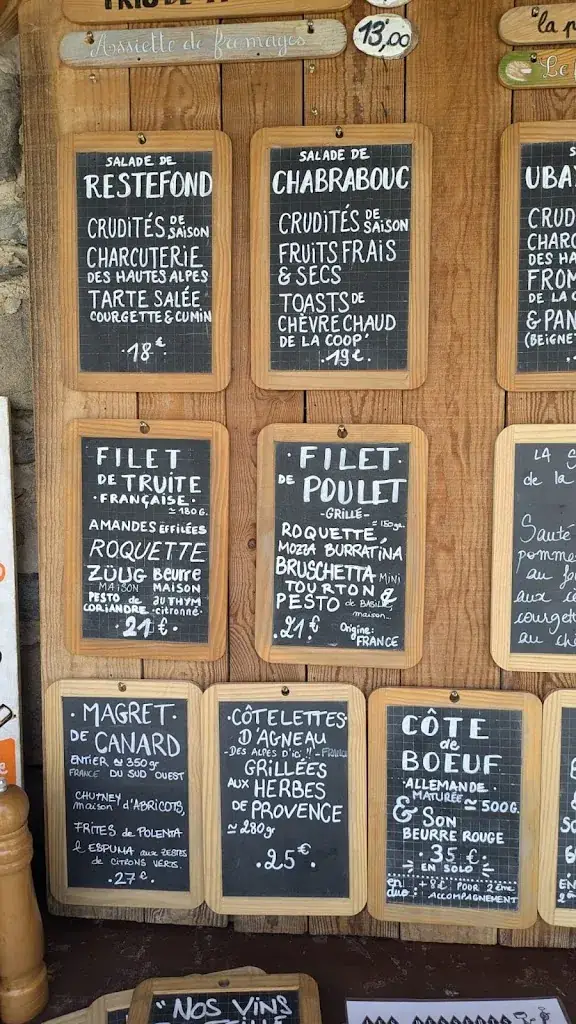 Assiette de fromages
13,00
la p
Le
SALADE DE
RESTEFOND
CRUDITÉS DE SAISON
CHARCUTERIE
DES HAUTES ALPES
TARTE SALÉE
COURGETTE & CUMIN
·18€·
SALADE DE
CHABRABOUC
CRUDITÉS DE SAISON
FRUITS FRAIS
& SECS
TOASTS DE
CHÈVRE CHAUD
DE LA COOP'
·19€·
UBA
CRUD
CHARC
DES HA
FROM
DE LA C
& PAN
(BEIGNE
FILET
DE TRUITE
·FRANÇAISE·
≃ 180 G.
AMANDES EFFILÉES
ROQUETTE
PESTO DE
CORIANDRE
MAISON
Beurre
MAISON
au THYM
citronné·
·21€·
·FILET·
DE POULET
-GRILLÉ-
≃ 150 gr.
ROQUETTE,
MOZZA BURRATINA
BRUSCHETTA MINI
TOURTON &
PESTO de BASILIC
maison...
·21€·
Origine:
FRANCE
LA S
de la
Sauté
pomme
au fe
aux c
courget
au ch
·MAGRET·
DE CANARD
ENTIER ≃ 350gr
FRANCE DU SUD OUEST
CHUTNEY
maison d'ABRICOTS,
FRITES de POLENTA
& ESPUMA aux ZESTES
de CITRONS VERTS.
·27€·
·CÔTELETTES·
D'AGNEAU
-DES ALPES D'ICI !!-
GRILLÉES
AUX HERBES
DE PROVENCE
≃ 280g
·25€·
CÔTE
de
BOEUF
·ALLEMANDE·
MATURÉE ≃ 500G.
& SON
BEURRE ROUGE
·35€·
EN SOLO
en duo: +8€ POUR 2ème
ACCOMPAGNEMENT
"NOS VINS